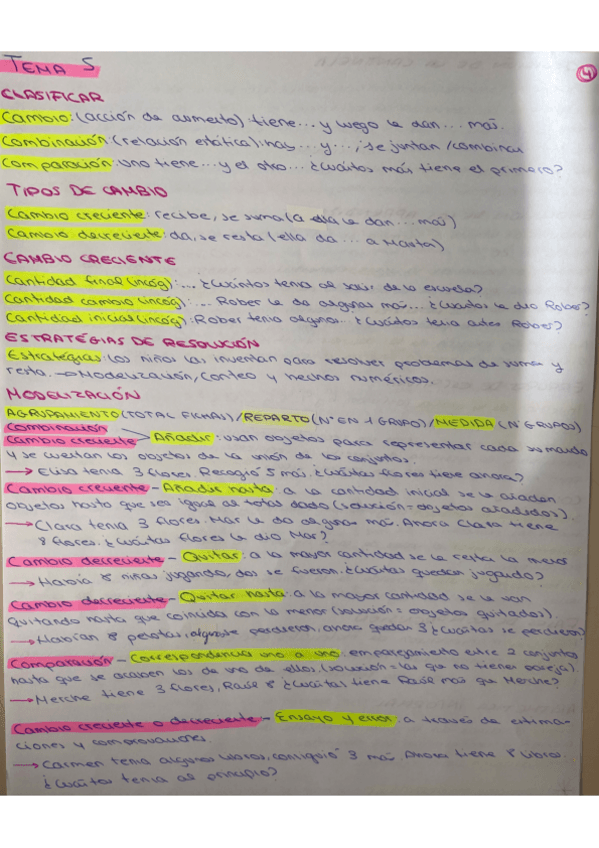 TEMA 5
4
CLASIFICAR
Cambio: (acción de aumento): tiene... y luego le dan... más.
Combinación: (relación estática): hay ... y ..., se juntan / combinan
Comparación: uno tiene... y el otro... ¿Cuántos más tiene el primero?
TIPOS DE CAMBIO
Cambio creciente: recibe, se suma (a ella le dan... más)
Cambio decreciente: da, se resta (ella da ... a Marta)
CAMBIO CRECIENTE
Cantidad final (incóg): ... ¿Cuántos tenía al salir de la escuela?
Cantidad cambio (incóg): ... Rober le da algunas más... ¿Cuántos le dio Rober?
Cantidad inicial (incóg): Rober tenía algunos... ¿Cuántos tenía antes Rober?
ESTRATEGIAS DE RESOLUCIÓN
Estrategias: los niños las inventan para resolver problemas de suma y
resta. → Modelización, Conteo y hechos numéricos.
MODELIZACIÓN
AGRUPAMIENTO (TOTAL FICHAS) / REPARTO (Nº EN 1 GRUPO) / MEDIDA (Nº GRUPOS)
Combinación
Cambio creciente - Añadir: usan objetos para representar cada sumando
y se cuentan los objetos de la unión de los conjuntos.
→ Elisa tenía 3 flores. Recogió 5 más. ¿Cuántas flores tiene ahora?
Cambio creciente - Añadir hasta: a la cantidad inicial se le añaden
objetos hasta que sea igual al total dado (solución = objetos añadidos).
→ Clara tenía 3 flores. Mar le dio algunas más. Ahora Clara tiene
8 flores. ¿Cuántas flores le dio Mar?
Cambio decreciente - Quitar: a la mayor cantidad se le resta la menor
→ Había 8 niñas jugando, dos se fueron. ¿Cuántas quedan jugando?
Cambio decreciente - Quitar hasta: a la mayor cantidad se le van
quitando hasta que coincida con la menor (solución = objetos quitados).
→ Habían 8 pelotas, algunas se perdieron, ahora quedan 3 ¿Cuántas se perdieron?
Comparación - Correspondencia uno a uno: emparejamiento entre 2 conjuntos
hasta que se acaben los de uno de ellos (solución = las que no tienen pareja).
→ Merche tiene 3 flores, Raúl 8 ¿Cuántas tiene Raúl más que Merche?
Cambio creciente o decreciente - Ensayo y error: a través de estima-
ciones y comprobaciones.
→ Carmen tenía algunos libros, consiguió 3 más. Ahora tiene 8 libros.
¿Cuántos tenía al principio?